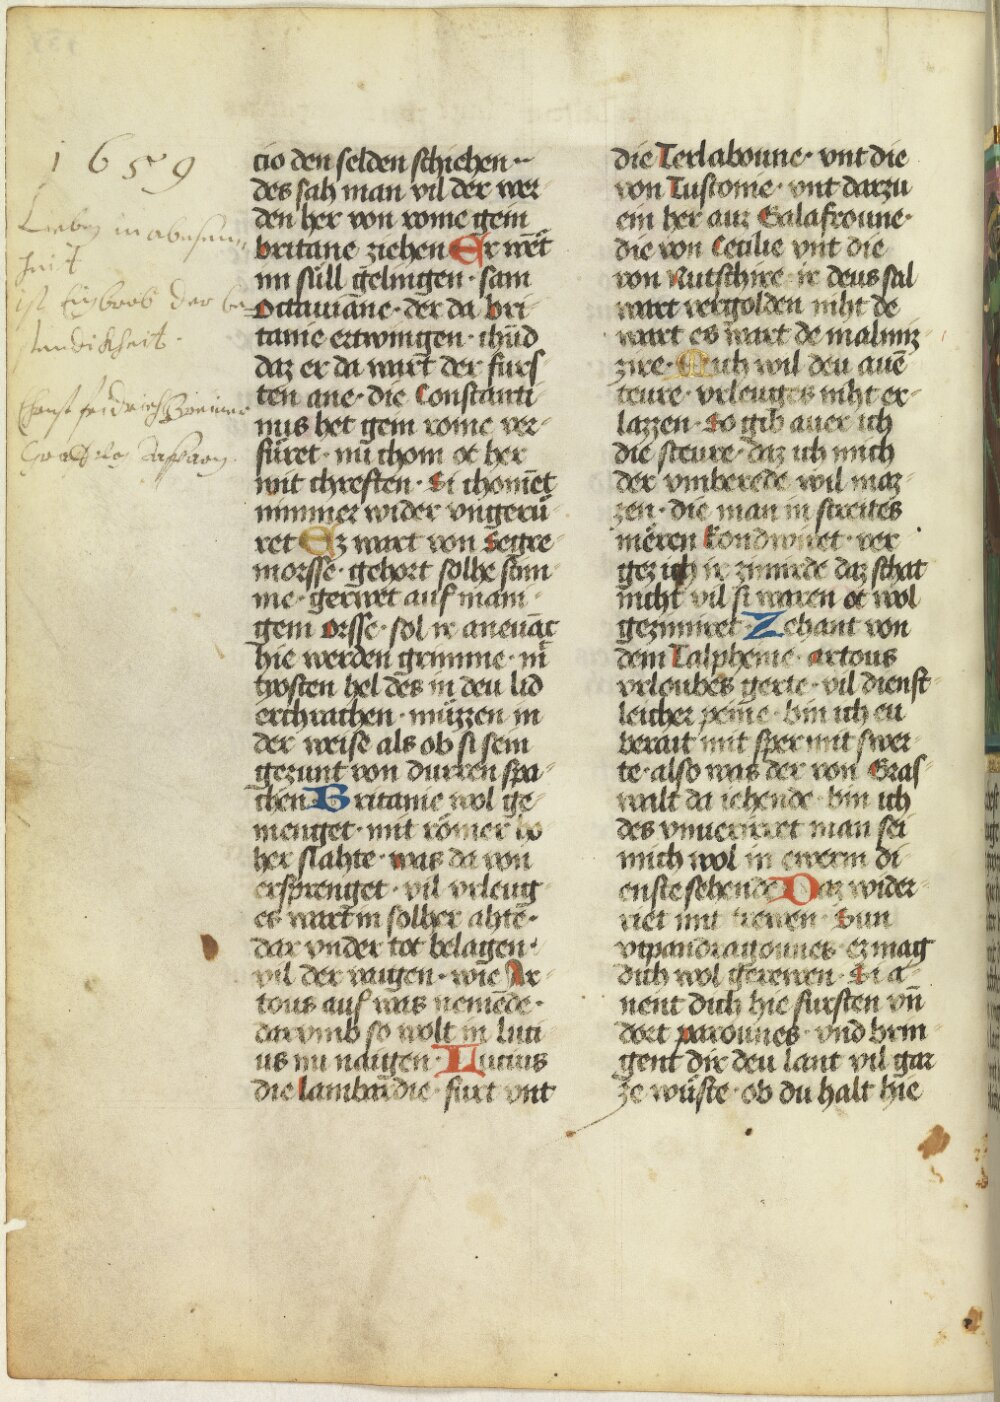 1659
Lieben in abwesen-
heit
ist Ein brob der be-
stendikheit.
Ernst fridrich
cio den selden schiehen ··
des sah man vil der wer-
den her von rome gein
britane ziehen Er wēt
im süll gelingen · sam
Octauiane · der da bri-
tanie ertwingen · chūd
daz er da wart der furs-
ten ane · die Constanti-
nus het gem rome ver-
füret · nu chom ot her
mit chreften · Si chomēt
nimmer wider vngerü-
ret Ez wart von Segre-
morsse · gehort solhe stim-
me · gerwet auf mani-
gem orsse · sol ir aneuāc
hie werden grimme · mā
trosten hel des in deu lid
erchrachen · müzzen in
der weise als ob si sein
gezunt von durren spa-
chen · Britanie wol ge-
menget · mit römer ho-
her slahte · was da von
ersprenget · vil vrleug
es wart in solher ahte ·
dar vnder tot belagen ·
vil der wagen · wie Ar-
tous auf was nemēde ·
darvmb so wolt in luci-
us nu naigen · Lucius
die lambardie · furt vnt
die Terlaboune · vnt die
von Tusconie · vnt darzu
ein her auz Galafroune ·
die von Cecilie vnt die
von Rutschire · ir deus sal
wart vergolden niht de
wart es wart de malmiz-
zire · Auch wil deu auē-
teure · vrleuges niht er-
lazzen · So gib auer ich
die steure · daz ich mich
der vmberede wil maz-
zen · die man in streites
mēren kondwiret · ver
gez ich ir zimirde daz schat
nicht vil si waren ot wol
gezimiret · Zehant von
dem Talphenie · artous
vrloubes gerte · vil dienst-
leicher peine · bin ich eu
berait mit sper mit swer-
te · also was der von Gras-
walt da iehende · bin ich
des vnuerirret man sei
mich wol in ewerm di-
enste sehende Daz wider-
riet im trewen · Sun
vtpandragounes · ez mag
dich wol gerewen · Si a-
nent dich hie fursten vn̄
dort parounes · vnd brin-
gent dir deu lant vil gar
ze wüste · ob du halt hie